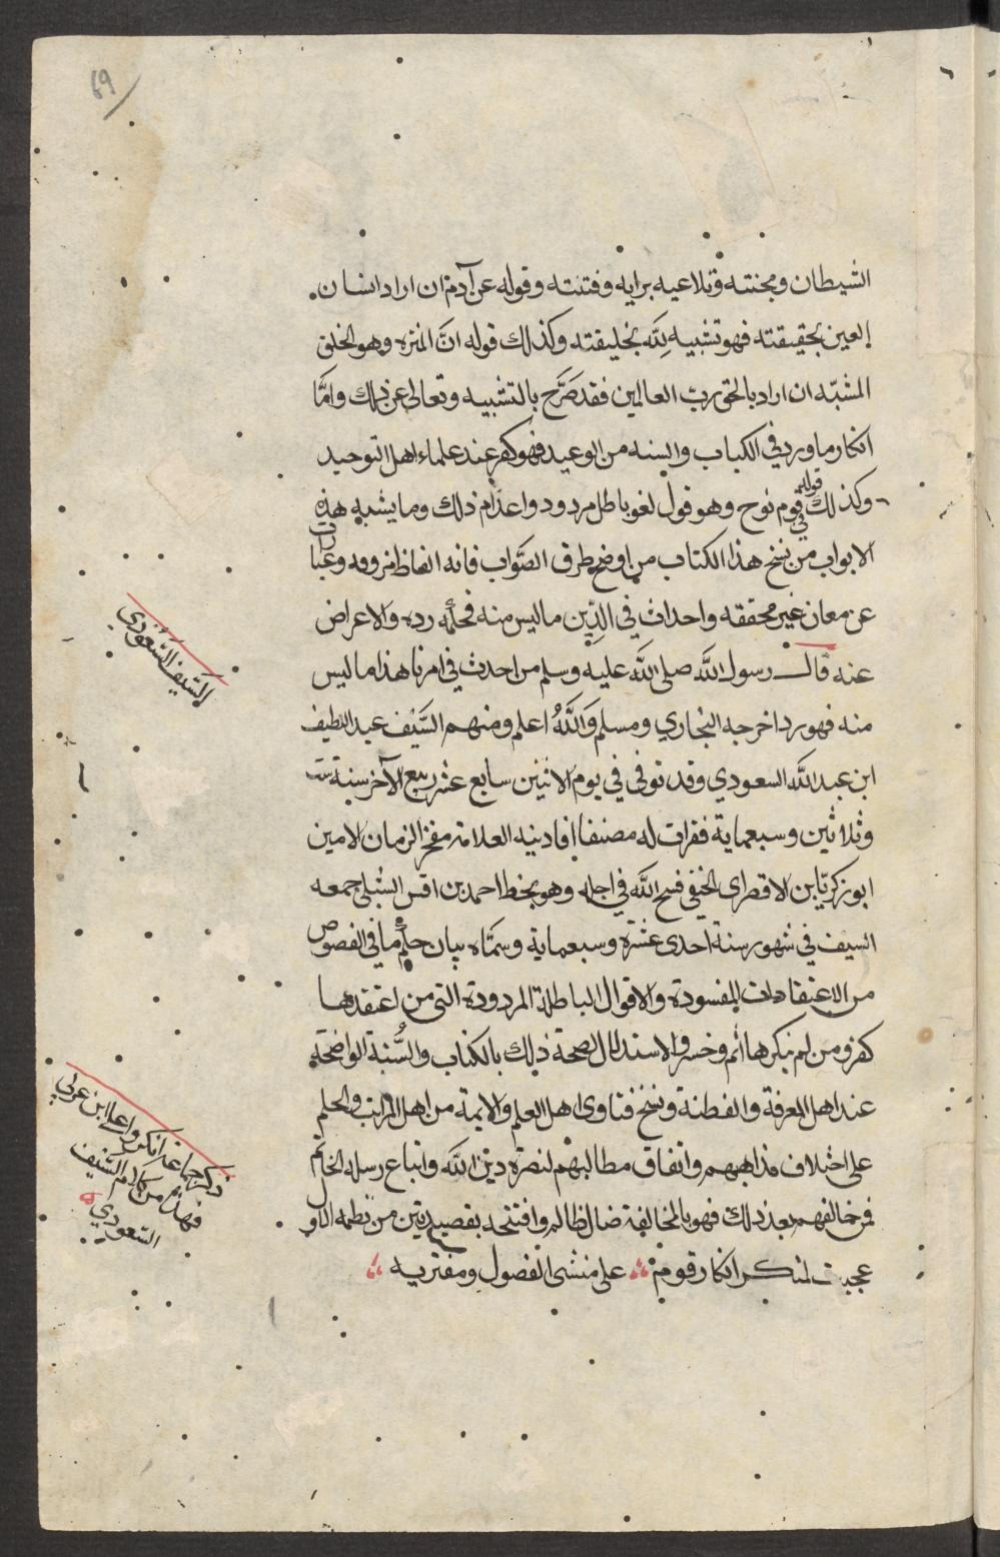 69
الشيطان ومحنته وتلاعبه برايه وفتنته وقوله عن آدم ان اراد انسان
العين بحقيقته فهو تشبيه لله بخليقته وكذلك قوله ان المنزه وهو الخلق
المشبه ان اراد بالحق رب العالمين فقد صرح بالتشبيه وتعالى عن ذلك واما
انكار ما ورد في الكتاب والسنه من الوعيد فهو كفر عند علماء اهل التوحيد
وكذلك قوله في قوم نوح وهو قول لغو باطل مردود واعدام ذلك وما يشبه هذه
الابواب من نسخ هذا الكتاب من اوضح طرق الصواب فانه الفاظ مزوقه وعبارات
عن معان غير محققه واحداث في الدين ما ليس منه فحكمه رده والاعراض
عنه قال رسول الله صلى الله عليه وسلم من احدث في امرنا هذا ما ليس
منه فهو رد اخرجه البخاري ومسلم والله اعلم ومنهم السيف عبد اللطيف
ابن عبد الله السعودي وقد توفي في يوم الاثنين سابع عشر ربيع الآخر سنة ست
وثلاثين وسبعماية فقرات له مصنفا افادنيه العلامة مفخر الزمان الامين
ابو زكريا بن الاقصراى الحنفي فسح الله في اجله وهو بخط احمد بن اقش الشبلي جمعه
السيف في شهور سنة احدى عشرة وسبعماية وسماه بيان حكم ما في الفصوص
من الاعتقادات المفسودة والاقوال الباطلة المردودة التي من اعتقدها
كفر ومن لم ينكرها اثم وخسر والاستدلال لصحة ذلك بالكتاب والسنة الواضحة
عند اهل المعرفة والفطنة ونسخ فتاوى اهل العلم والايمة من اهل المراتب والحلم
على اختلاف مذاهبهم واتفاق مطالبهم لنصرة دين الله واتباع رسله الخاتم
فمن خالفهم بعد ذلك فهو بالمخالفة ضال ظالم وافتتحه بقصيدتين من نظمه الاول
عجبت لمنكر انكار قوم على منشى الفصول ومفتريه
السيف السعودي
ذكر جماعة انكروا على ابن عربي
فهذا من كلام السيف
السعودي